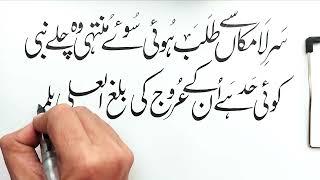 سرِ لامکاں سے طلب ہوئی سوئے منتہیٰ وہ چلے نبی
کوئی حد ہے اُن کے عروج کی بلغ العلیٰ